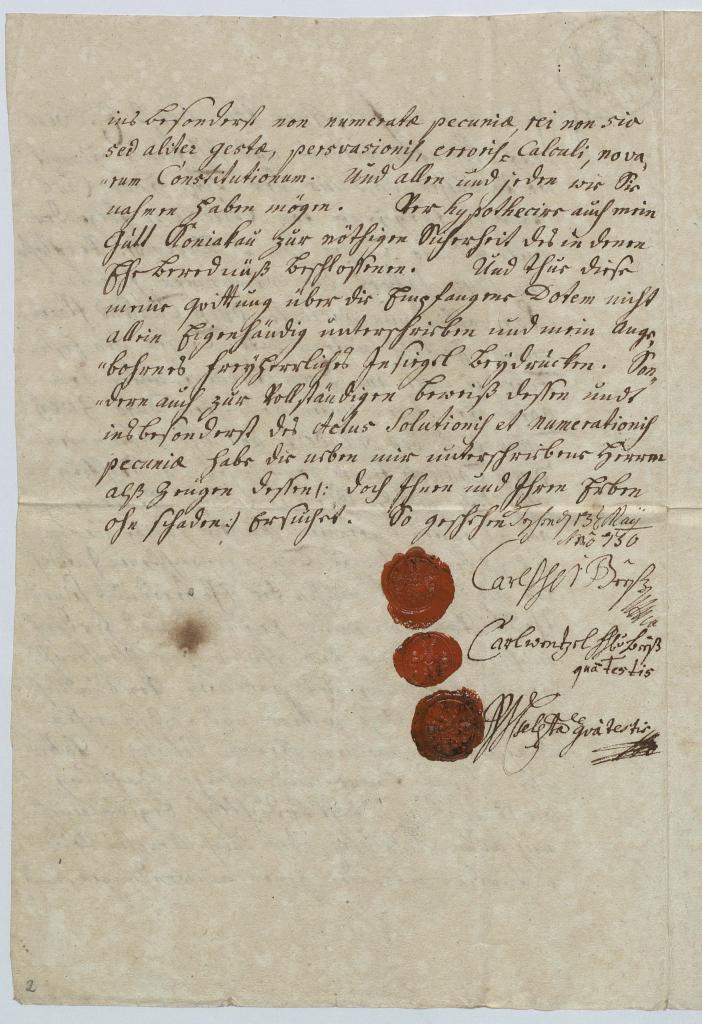 ins besonderst non numeratæ pecuniæ, rei non sic
sed aliter gestæ, persvasionis, erroris Calculi, nova-
-rum Constitutionum. Und allen und jeden wie Sie
nahmen haben mögen. Ver hypothecire auch mein
Gutt Koniakau zur nöthigen Sicherheit des in denen
Ehe berednüß beschlossenen. Und thue diese
meine quittung über die Empfangene Dotem nicht
allein Eigenhändig unterschrieben und mein Ange-
-bohrnes freyherrliches Insiegel beydrücken. Son-
-dern auch zur Vollständigen beweiß dessen undt
insbesonderst des Actus Solutionis et numerationis
pecuniæ habe die neben mir unterschriebene Herren
alß Zeugen dessen /: doch Ihnen und Ihren Erben
ohn schaden :/ ersuchet. So geschehen Teschen d 13 May
Ano 730
Carl
Carl wentzel
qua Testis
qva testis
2